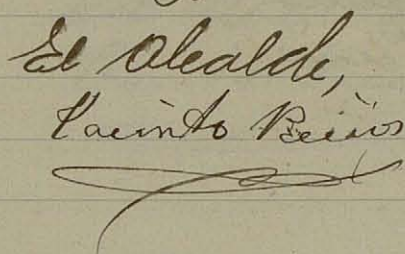 El Alcalde,
Jacinto